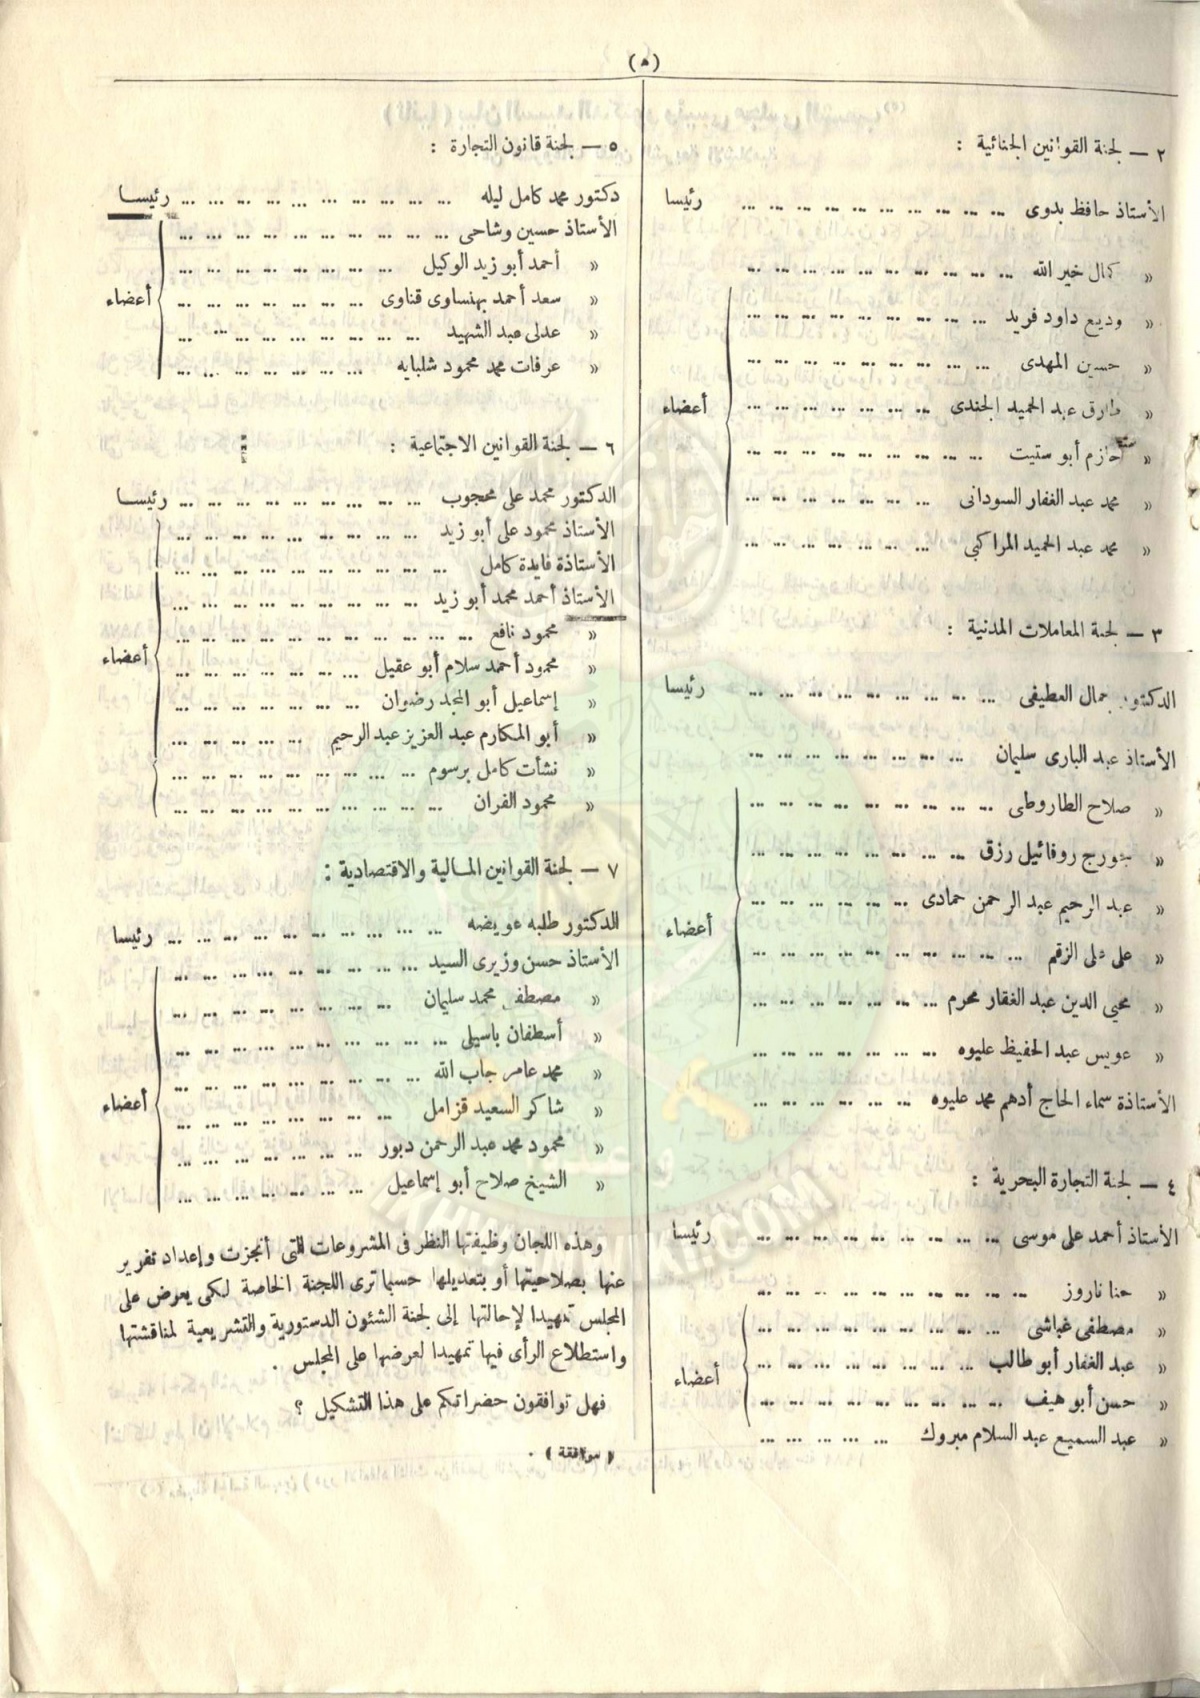 (٨)
٢ — لجنة القوانين الجنائية :
الأستاذ حافظ بدوى ... ... ... ... ... ... ... ... ... ... رئيسا
« كمال خير الله ... ... ... ... ... ... ... ... ... ...
« وديع داود فريد ... ... ... ... ... ... ... ... ...
« حسين المهدى ... ... ... ... ... ... ... ... ...
« طارق عبد الحميد الجندى ... ... ... ... ... ... ... أعضاء
« حازم أبو ستيت ... ... ... ... ... ... ... ... ...
« محمد عبد الغفار السودانى ... ... ... ... ... ... ...
« محمد عبد الحميد المراكبى ... ... ... ... ... ... ...
٣ — لجنة المعاملات المدنية :
الدكتور جمال العطيفى ... ... ... ... ... ... ... ... ... رئيسا
الأستاذ عبد البارى سليمان ... ... ... ... ... ... ... ...
« صلاح الطاروطى ... ... ... ... ... ... ... ... ...
« جورج روفائيل رزق ... ... ... ... ... ... ... ...
« عبد الرحيم عبد الرحمن حمادى ... ... ... ... ... ...
أعضاء
« على على الزقم ... ... ... ... ... ... ... ... ... ...
« محيى الدين عبد الغفار محرم ... ... ... ... ... ... ...
« عويس عبد الحفيظ عليوه ... ... ... ... ... ... ...
الأستاذة سماء الحاج أدهم محمد عليوه ... ... ... ... ... ...
٤ — لجنة التجارة البحرية :
الأستاذ أحمد على موسى ... ... ... ... ... ... ... ... ... رئيسا
« حنا ناروز ... ... ... ... ... ... ... ... ... ...
« مصطفى غباشى ... ... ... ... ... ... ... ... ...
« عبد الغفار أبو طالب ... ... ... ... ... ... ... ...
أعضاء
« حسن أبو هيف ... ... ... ... ... ... ... ... ...
« عبد السميع عبد السلام مبروك ... ... ... ... ...
٥ — لجنة قانون التجارة :
دكتور محمد كامل ليله ... ... ... ... ... ... ... ... ... ... رئيسا
الأستاذ حسين وشاحى ... ... ... ... ... ... ... ... ... ...
« أحمد أبو زيد الوكيل ... ... ... ... ... ... ... ...
« سعد أحمد بهنساوى قناوى ... ... ... ... ... ... ... أعضاء
« عدلى عبد الشهيد ... ... ... ... ... ... ... ... ...
« عرفات محمد محمود شلبايه ... ... ... ... ... ... ...
٦ — لجنة القوانين الاجتماعية :
الدكتور محمد على محجوب ... ... ... ... ... ... ... ... ... رئيسا
الأستاذ محمود على أبو زيد ... ... ... ... ... ... ... ... ...
الأستاذة فايدة كامل ... ... ... ... ... ... ... ... ... ...
الأستاذ أحمد محمد أبو زيد ... ... ... ... ... ... ... ... ...
« محمود نافع ... ... ... ... ... ... ... ... ... ... ...
أعضاء
« محمود أحمد سلام أبو عقيل ... ... ... ... ... ... ...
« إسماعيل أبو المجد رضوان ... ... ... ... ... ... ...
« أبو المكارم عبد العزيز عبد الرحيم ... ... ... ... ...
« نشأت كامل برسوم ... ... ... ... ... ... ... ... ...
« محمود الفران ... ... ... ... ... ... ... ... ... ...
٧ — لجنة القوانين المالية والاقتصادية :
الدكتور طلبه عويضه ... ... ... ... ... ... ... ... ... ... رئيسا
الأستاذ حسن وزيرى السيد ... ... ... ... ... ... ... ... ...
« مصطفى محمد سليمان ... ... ... ... ... ... ... ...
« أسطفان باسيلى ... ... ... ... ... ... ... ... ... ...
« محمد عامر جاب الله ... ... ... ... ... ... ... ... ...
« شاكر السعيد قزامل ... ... ... ... ... ... ... ... أعضاء
« محمود محمد عبد الرحمن دبور ... ... ... ... ... ... ...
« الشيخ صلاح أبو إسماعيل ... ... ... ... ... ... ...
وهذه اللجان وظيفتها النظر فى المشروعات التى أنجزت وإعداد تقرير
عنها بصلاحيتها أو بتعديلها حسبما ترى اللجنة الخاصة لكى يعرض على
المجلس تمهيدا لإحالتها إلى لجنة الشئون الدستورية والتشريعية لمناقشتها
واستطلاع الرأى فيها تمهيدا لعرضها على المجلس .
فهل توافقون حضراتكم على هذا التشكيل ؟
( موافقة ) .